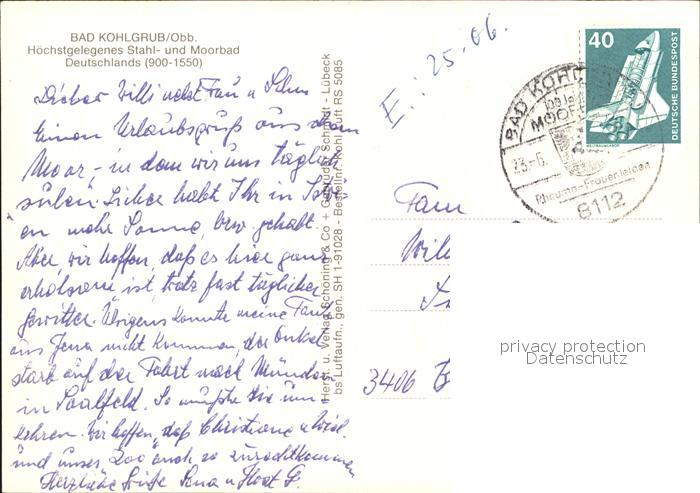 BAD KOHLGRUB/Obb.
Höchstgelegenes Stahl- und Moorbad
Deutschlands (900-1550)
Lieber Willi nebst Frau u Sohn
Einen Urlaubsgruß aus dem
Moor - in dem wir uns täglich
Sicher habt Ihr in
en mehr Sonne, bzw. gehabt.
Aber wir hoffen, daß es hier ganz
erholsam ist, trotz fast täglicher
Gewitter. Übrigens konnte meine Tante
aus Jena nicht kommen, der Onkel
starb auf der Fahrt nach München
in Saalfeld. So mußte sie um
kehren. Wir hoffen, daß Christiane u
und unser Zoo auch so zurechtkommen
Herzliche Grüße u Horst G.
Herst. u. Verlag Schöning & Co + Gebrüder Schmidt - Lübeck
bs Luftaufn., gen. SH 1-91028 - Bestellnr. Kohl Luft RS 5085
E.: 25.06.
BAD KOHLGRUB
MOOR
23.-6.
Rheuma-Frauenleiden
8112
40
DEUTSCHE BUNDESPOST
WELTRAUMLABOR
Fam
Wil
3406
privacy protection
Datenschutz